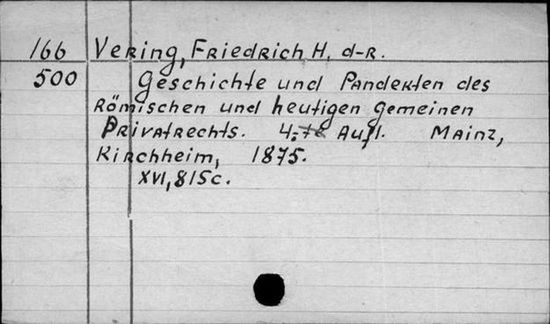 166 Vering, Friedrich H. d-r.
500 Geschichte und Pandekten des
Römischen und heutigen gemeinen
Privatrechts. 4-te Aufl. Mainz,
Kirchheim, 1875.
XVI, 815c.